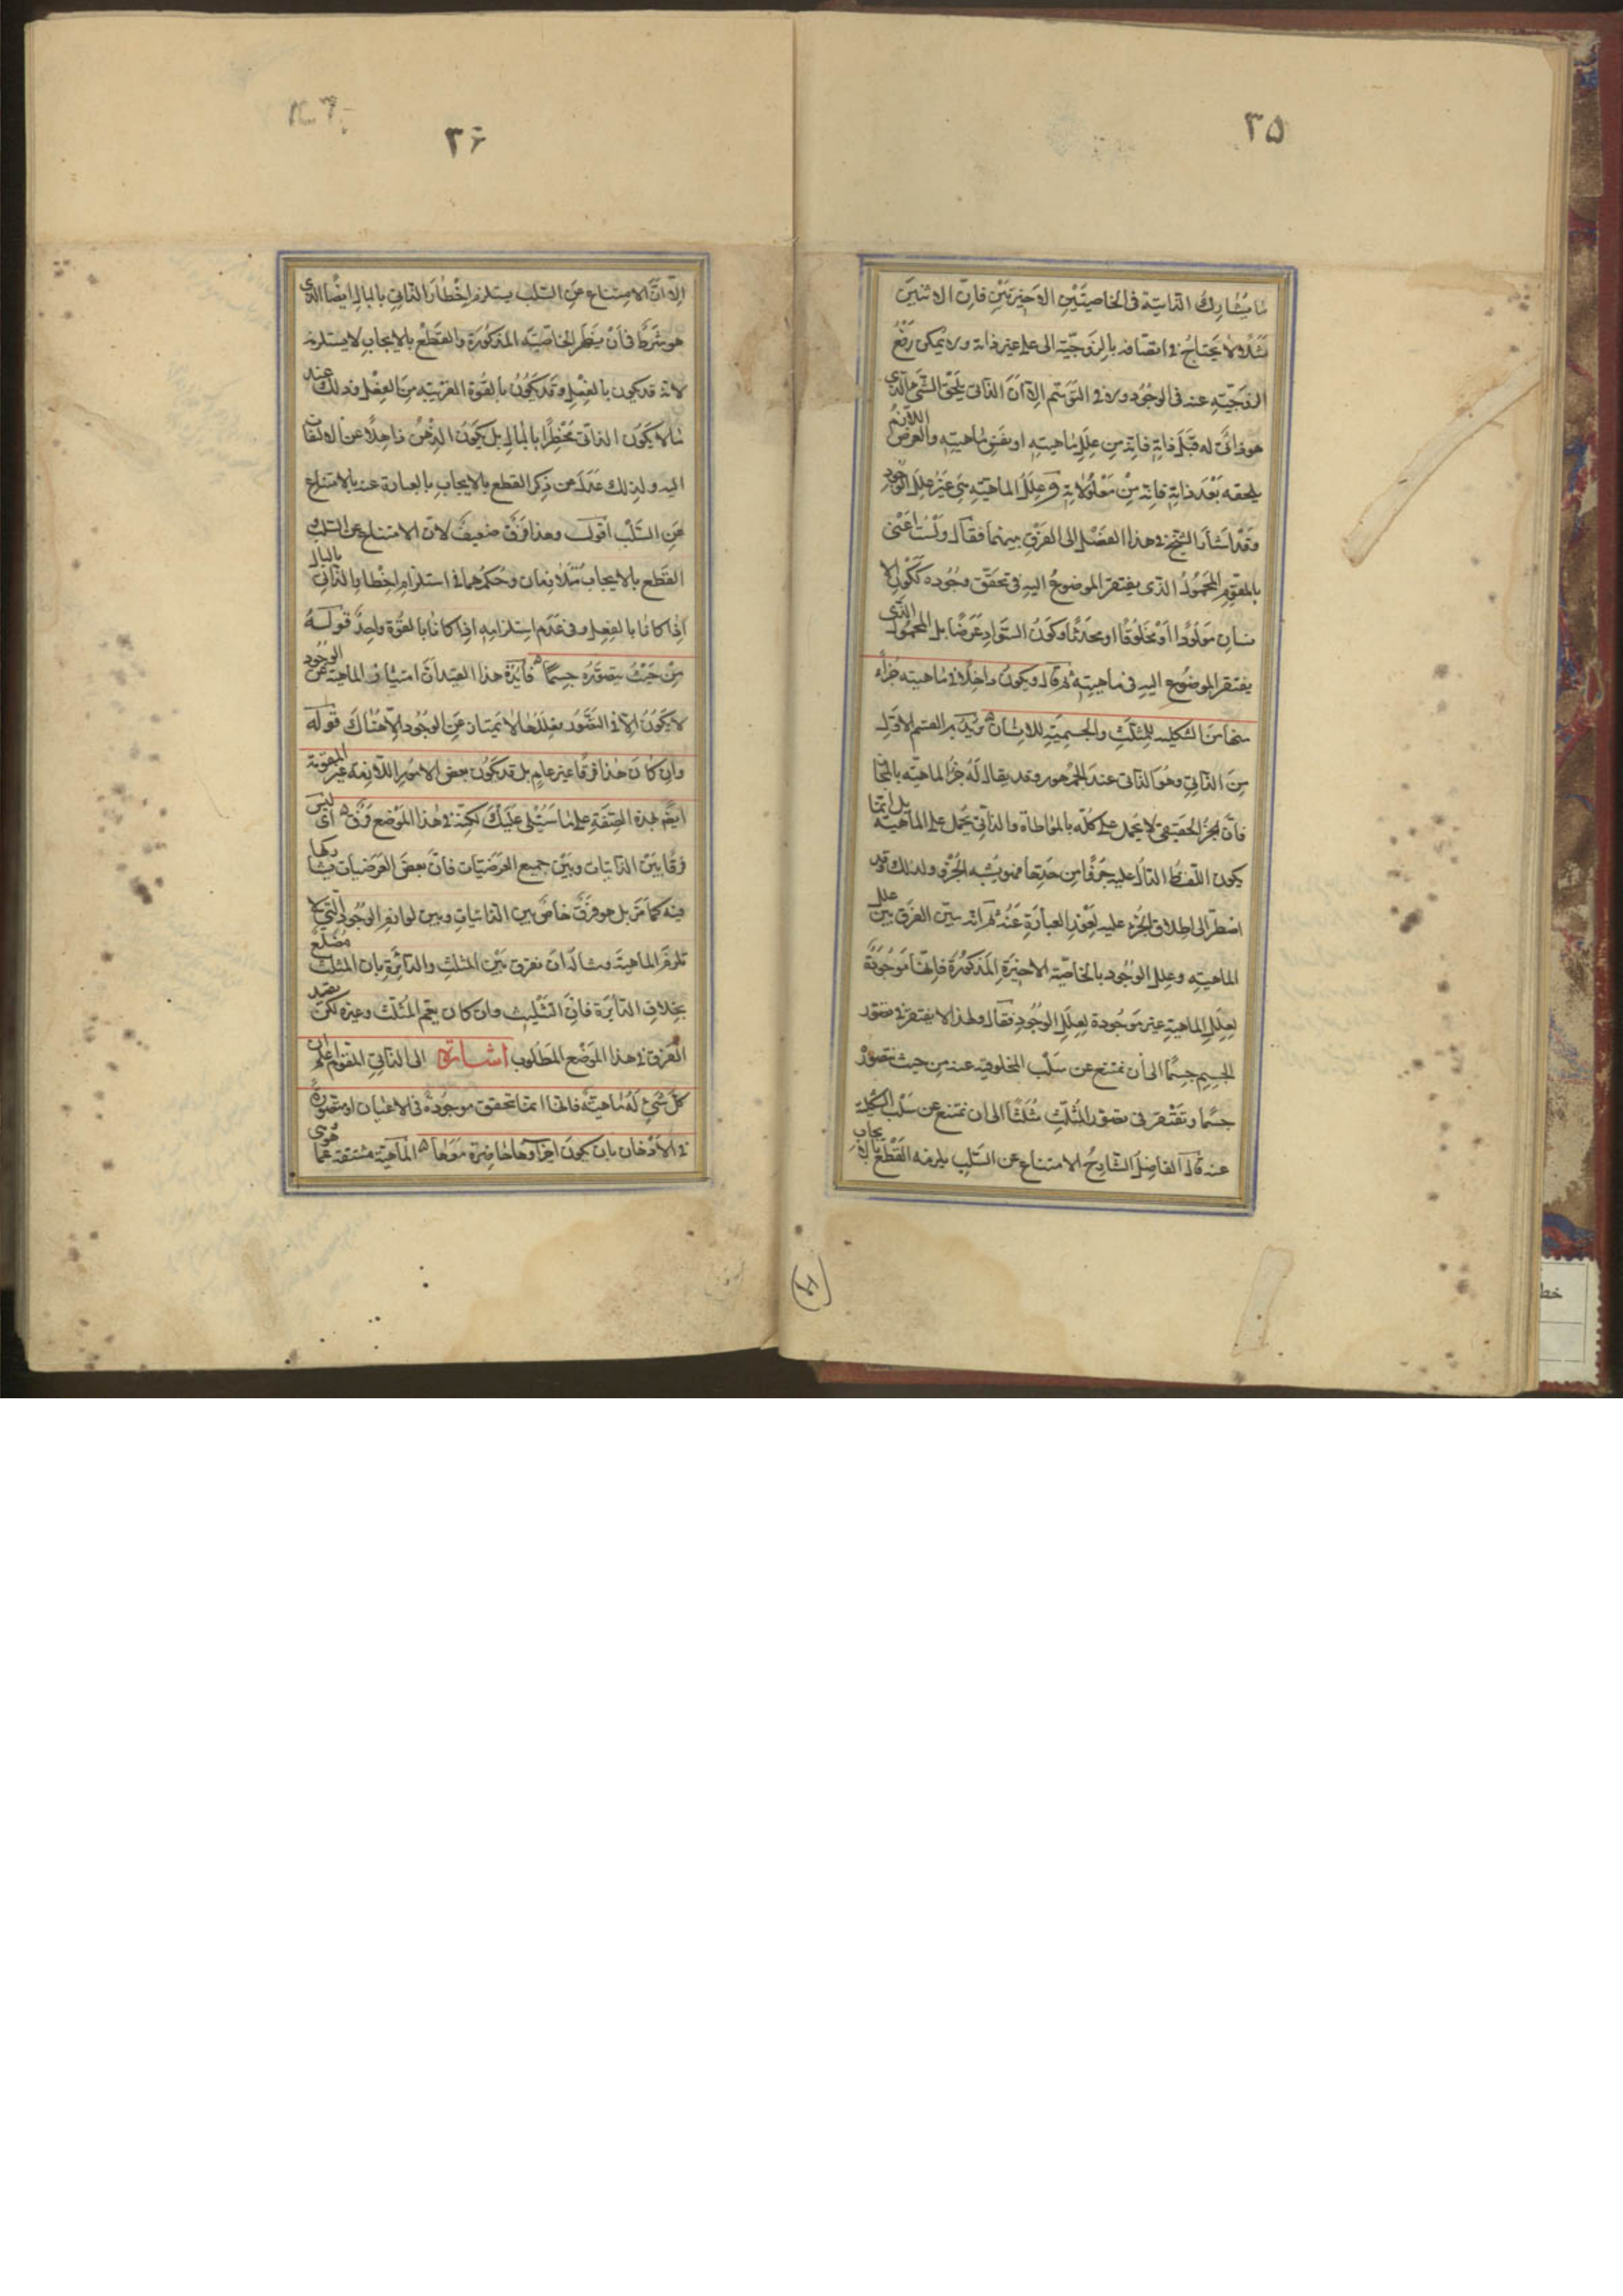 ٣٥
ما يشارك الذاتية في الخاصيتين الاخيرتين فان الاثنين
مثلا لا يحتاج في اتصافه بالزوجية الى علة غير ذاته ولا يمكن رفع
الزوجية عنه في الوجود ولا في التوهم الا ان الذاتي يلحق الشئ الذي
هو ذاتي له قبل ذاته فانه من علل ماهيته او نفس ماهيته والعرض اللازم
يلحقه بعد ذاته فانه من معلولاته وعلل الماهية هي غير علل الوجود
وقد اشار الشيخ في هذا الفصل الى الفرق بينهما فقال ولست اعني
بالمقوم المحمول الذي يفتقر الموضوع اليه في تحقق وجوده ككون الا
نسان مولودا او مخلوقا او محدثا وكون السواد عرضا بل المحمول الذي
يفتقر الموضوع اليه في ماهيته ثم قال ويكون داخلا في ماهيته جزاء
منها مثل الشكلية للمثلث والجسمية للانسان يريد به القسم الاول
من الذاتي وهو الذاتي عند الجمهور وقد يقال له جزء الماهية بالمجاز
فان الجزء الحقيقي لا يحمل على كله بالمواطاة والذاتي يحمل على الماهية بل انما
يكون اللفظ الدال عليه جزءا من حدها فهو يشبه الجزء ولذلك وقد
اضطر الى اطلاق الجزء عليه لعوز العبارة عنه ثم انه بين الفرق بين علل
الماهية وعلل الوجود بالخاصة الاخيرة المذكورة فانها موجودة
لعلل الماهية غير موجودة لعلل الوجود فقال ولهذا لا يفتقر في تصور
الجسم جسما الى ان نمتنع عن سلب المخلوقية عنه من حيث نتصوره
جسما ونفتقر في تصور المثلث مثلثا الى ان نمتنع عن سلب الشكلية
عنه قال الفاضل الشارح الامتناع عن السلب يلزمه القطع بالايجاب
٣٦
الا ان الامتناع عن السلب يستلزم اخطار الذاتي بالبال ايضا الذي
هو شرط في ان يظهر الخاصية المذكورة والقطع بالايجاب لا يستلزمه
لانه قد يكون بالفعل وقد يكون بالقوة القريبة من الفعل وذلك عند
ما لا يكون الذاتي مخطرا بالبال بل يكون الذهن ذاهلا عن الالتفات
اليه ولذلك عدل عن ذكر القطع بالايجاب بالعبارة عنه بالامتناع
عن السلب اقول وهذا فرق ضعيف لان الامتناع عن السلب و
القطع بالايجاب متلازمان وحكمهما في استلزام اخطار الذاتي بالبال
اذا كانا بالفعل وفي عدم استلزامه اذا كانا بالقوة واحد قوله
من حيث يتصوره جسما فايدة هذا القيد ان امتياز الماهية عن الوجود
لا يكون الا في التصور فعللها لا يمتاز عن الوجود الا هناك قوله
وان كان هذا فرقا غير عام بل قد يكون بعض الامور اللازمة غير المقومة
ايضا بهذه الصفة على ما سيتلى عليك لكنه في هذا الموضع فرق اى ليس
فرقا بين الذاتيات وبين جميع العرضيات فان بعض العرضيات يشاركها
فيه كما مر بل هو فرق خاص بين الذاتيات وبين لوازم الوجود التي لا
تلزم الماهية ومثاله ان نفرق بين المثلث والدائرة بان المثلث مضلع
بخلاف الدائرة فان التثليث وان كان يعم المثلث وغيره لكن يفيد
الفرق في هذا الموضع المطلوب اشارة الى الذاتي المقوم اعلم ان
كل شئ له ماهية فانها انما تتحقق موجودة في الاعيان او متصورة
في الاذهان بان يكون اجزاؤها حاضرة معها الماهية مشتقة عما هوى